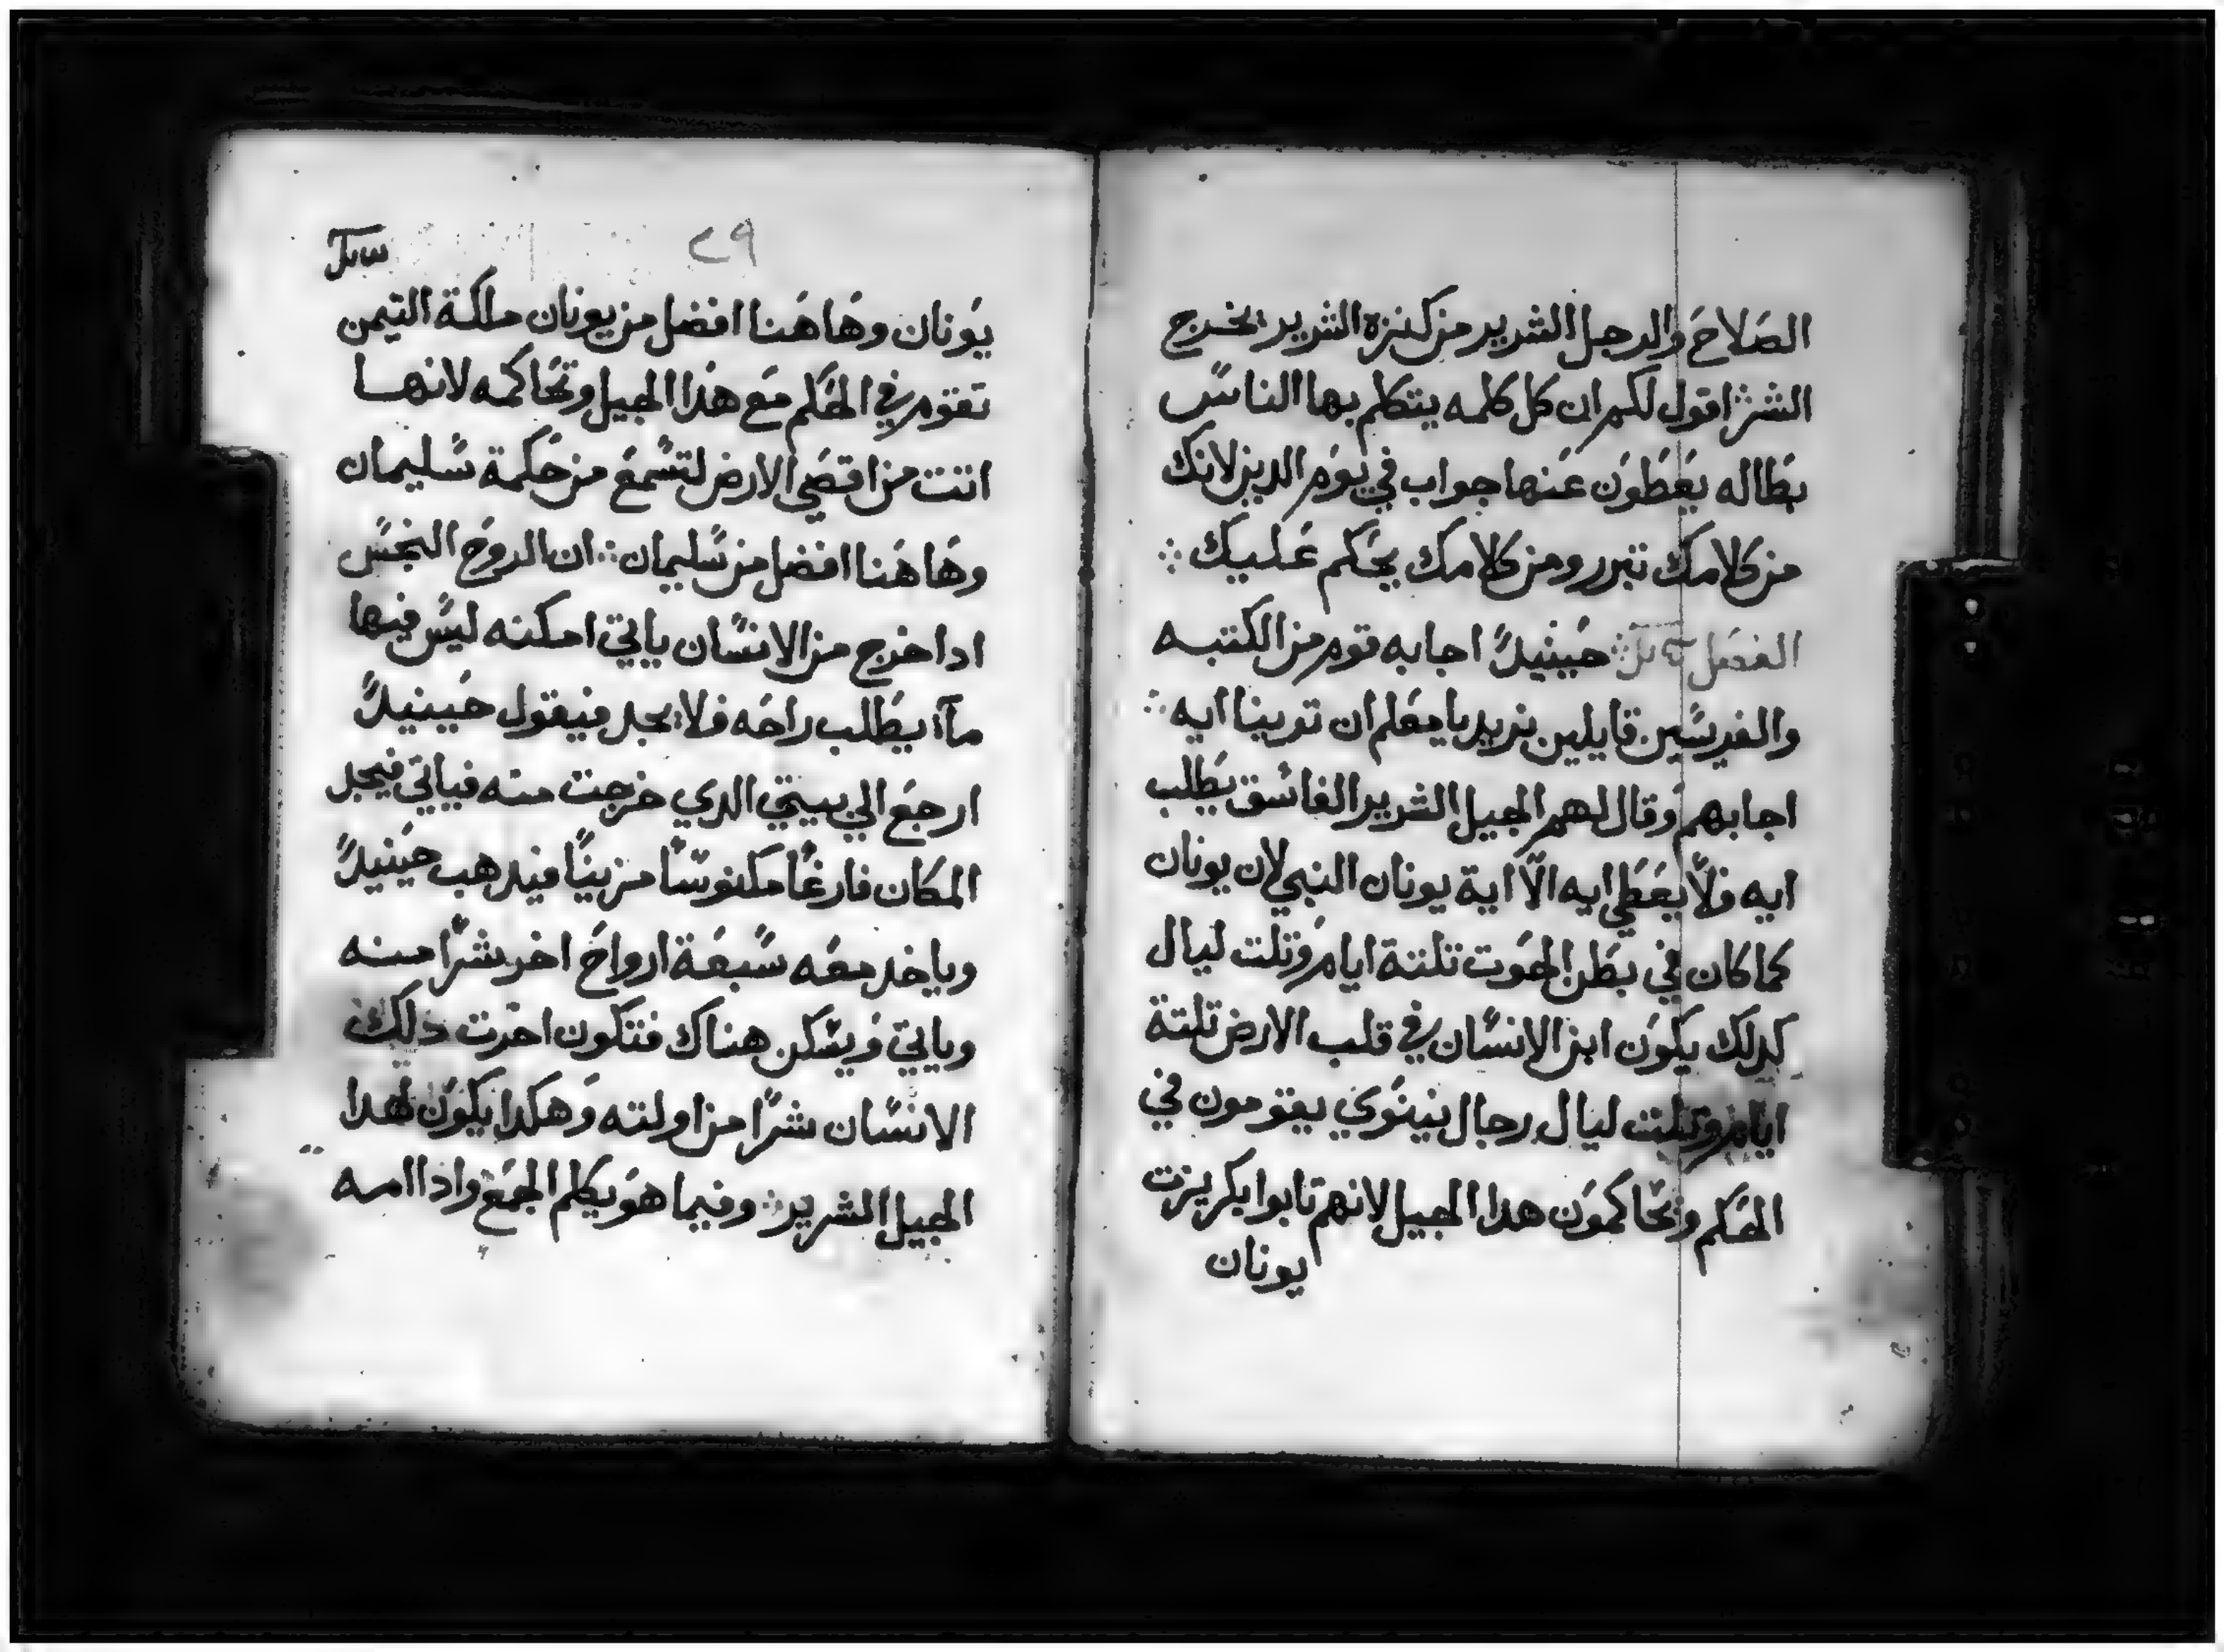 الصَلاحَ والرجل الشرير من كنزه الشرير يخرج
الشر ∴ اقول لكم ان كل كلمه يتكلم بها الناسً
بطاله يعَطَوَن عَنها جواب في يَوَم الدين لانك
من كَلامك تتبرر ومن كلامك يحَكم عَليك ∴
الفصَل ∴ حَينيدً اجابه قوم من الكتبه
والفريسًين قايلين نريد يا معَلم ان تورينا ايه ∴
اجابهم وَقال لهم الجيل الشرير الفاسًق يطَلب
ايه فلاً يعَطَي ايه الاّ اية يونان النبي لان يونان
كما كان في بطَن الحَوت تلتة ايام وَتلت ليال
كدلك يكَوَن ابن الانسًان في قلب الارض تلتة
ايام وتلت ليال رجال نينوَي يقومون في
الحَكم وتحَاكموَن هدا الجيل لانهم تابوا بكريزت
يونان
٢٩
يوَنان وهَاهَنا افضل من يونان ملكة التيمن
تقوم في الحَكم مَع هَدا الجيل وتحَاكمه لانها
اتت من اقصَي الارض لتسًمعَ من حَكمة سًليمان
وهَاهَنا افضل من سًليمان ∴ ان الروحَ النجسً
ادا خرج من الانسًان ياتي امكنه ليسً فيها
مآء يطَلب راحَه فلا يجد فيقول حَينيدً
ارجعَ الي بيتي الدي خرجت منه فياتي فيجد
المكَان فارغاً مكنوسًاً مزيناً فيدهب حَينيدً
وياخد معَه سًبعَة ارواحَ اخر شرًا منه
وياتي وَيسًكن هناك فتكون اخرت ذلك
الانسًان شرًا من اولته وَهكدا يكوَن لهدا
الجيل الشرير ∴ وفيما هوَ يكلم الجمَع واذا امه